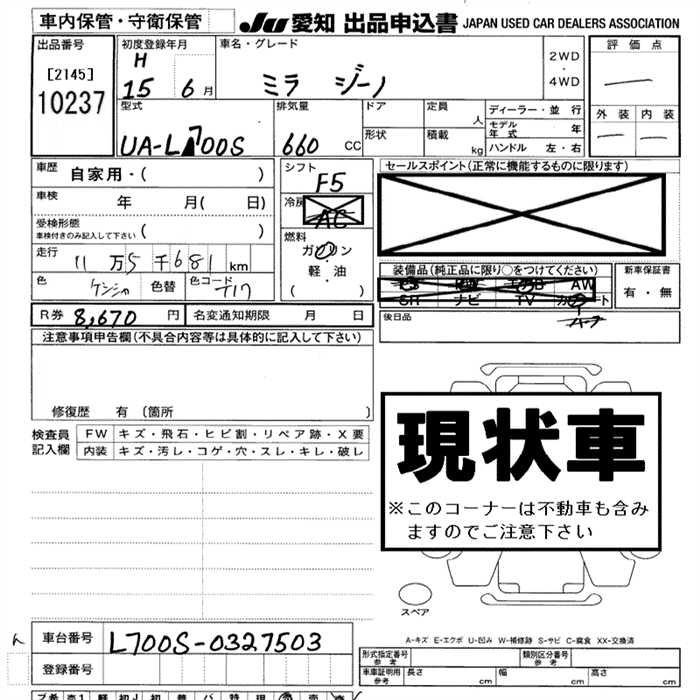 車内保管・守衛保管 JU 愛知 出品申込書 JAPAN USED CAR DEALERS ASSOCIATION
出品番号 初度登録年月 車名・グレード 2WD・4WD 評価点
[2145] H
10237 15 6月 ミラ ジーノ
外装 内装
型式 排気量 ドア 定員 人 ディーラー・並行
モデル年式 年
UA-L700S 660 CC 形状 積載 kg ハンドル 左・右
車歴 自家用・( ) シフト F5 セールスポイント(正常に機能するものに限ります)
車検 年 月( 日) 冷房 AC
受検形態 ( )
車検付きのみ記入して下さい
燃料 ガソリン
走行 11万5千681km 軽・油
( )
装備品(純正品に限り○をつけてください) 新車保証書
AW 有・無
色 色替 色コード T17
SR ナビ TV
後日品
R券 8,670円 名変通知期限 月 日
注意事項申告欄(不具合内容等は具体的に記入して下さい)
修復歴 有(箇所 )
検査員記入欄 FW キズ・飛石・ヒビ割・リペア跡・X要
内装 キズ・汚レ・コゲ・穴・スレ・キレ・破レ
現状車
※このコーナーは不動車も含み
ますのでご注意下さい
スペア
A-キズ E-エクボ U-凹み W-補修跡 S-サビ C-腐食 XX-交換済
車台番号 L700S-0327503
登録番号
形式指定番号 参考 類別区分番号 参考
車庫証明用 参考 長さ cm 幅 cm 高さ cm